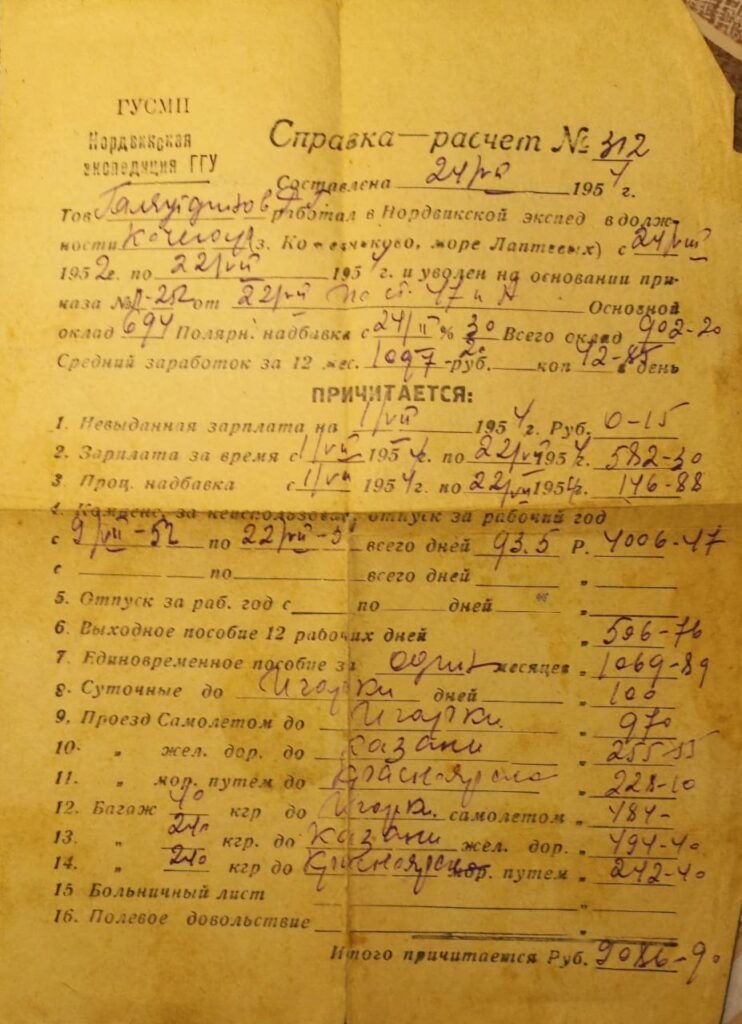 ГУСМП
Нордвикская
экспедиция ГГУ
Справка—расчет № 312
Составлена 24/VII 1954 г.
Тов работал в Нордвикской экспед в долж-
ности Кочегар з. Кожевниково, море Лаптевых) с 24/VIII
1952г. по 22/VII 1954 г. и уволен на основании при-
каза № от 22/VII по ст. 47 п А Основной
оклад 694 Полярн. надбавка с 24/II % 30 Всего оклад 902-20
Средний заработок за 12 мес. 1097 руб. 20 коп 42-85 в день
ПРИЧИТАЕТСЯ:
1. Невыданная зарплата на 1/VII 1954 г. Руб. 0-15
2. Зарплата за время с 1/VII 1954г. по 22/VII 1954г. 582-30
3. Проц. надбавка с 1/VII 1954г. по 22/VII 1954г. 146-88
4. Компенс. за неиспользован. отпуск за рабочий год
с 9/VII-52 по 22/VII-5 всего дней 93.5 Р. 4006-47
с по всего дней „
5. Отпуск за раб. год с по дней „
6. Выходное пособие 12 рабочих дней „ 506-76
7. Единовременное пособие за один месяцев „ 1069-89
8. Суточные до Игарки дней „ 100
9. Проезд Самолетом до Игарки „ 970
10. „ жел. дор. до Казани „ 255-55
11. „ мор. путем до Красноярска „ 228-10
12. Багаж 40 кгр до Игарки самолетом „ 484-
13. „ 240 кгр. до Казани жел. дор. „ 494-40
14. „ 240 кгр до Красноярск мор. путем „ 242-40
15 Больничный лист „
16. Полевое довольствие „
Итого причитается Руб. 9086-90